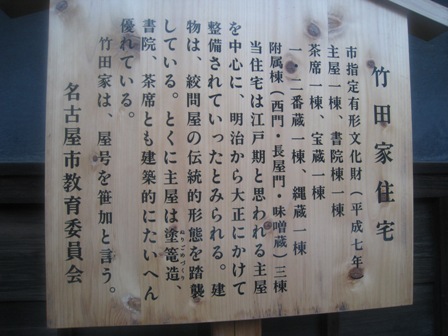 竹田家住宅
市指定有形文化財（平成七年）
主屋一棟、書院棟一棟
茶席一棟、宝蔵一棟
一・二番蔵一棟、縄蔵一棟
附属棟（西門・長屋門・味噌蔵）三棟
当住宅は江戸期と思われる主屋
を中心に、明治から大正にかけて
整備されていったとみられる。建
物は、絞問屋の伝統的形態を踏襲
している。とくに主屋は塗籠造、
ぬりごめづくり
書院、茶席とも建築的にたいへん
優れている。
竹田家は、屋号を笹加と言う。
名古屋市教育委員会